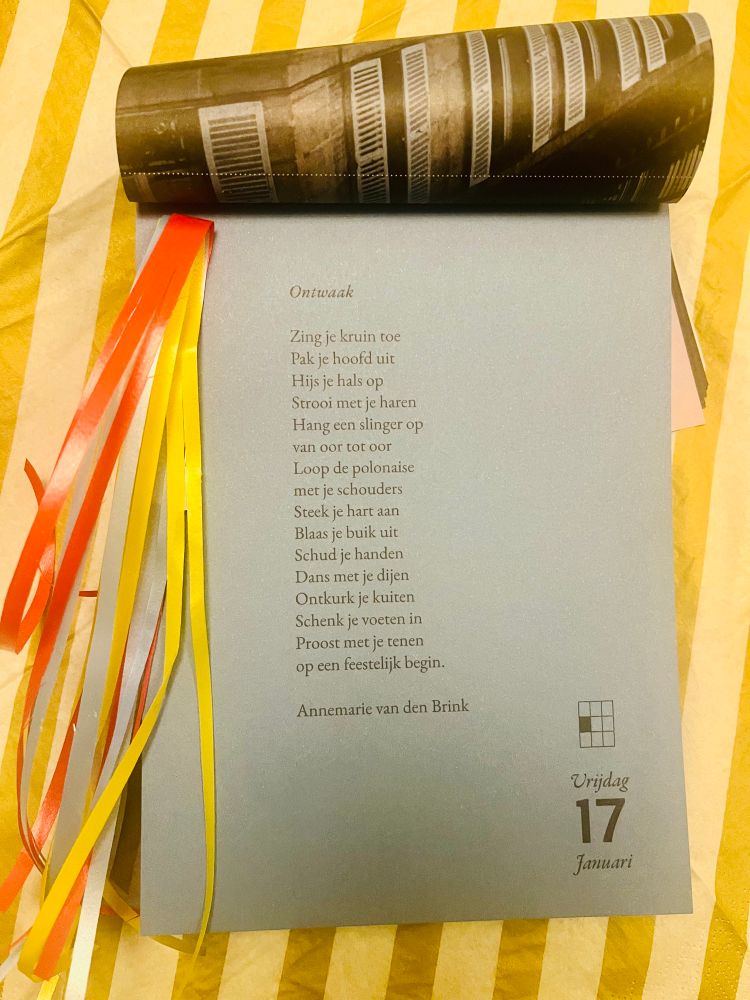 Ontwaak
Zing je kruin toe
Pak je hoofd uit
Hijs je hals op
Strooi met je haren
Hang een slinger op
van oor tot oor
Loop de polonaise
met je schouders
Steek je hart aan
Blaas je buik uit
Schud je handen
Dans met je dijen
Ontkurk je kuiten
Schenk je voeten in
Proost met je tenen
op een feestelijk begin.
Annemarie van den Brink
Vrijdag
17
Januari